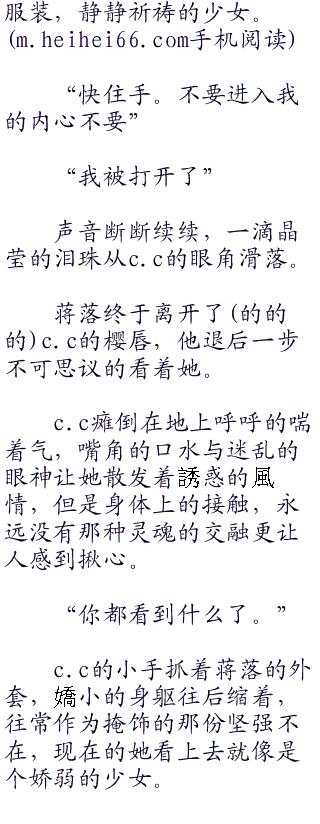 服装，静静祈祷的少女。
(m.heihei66.com手机阅读)
“快住手。不要进入我
的内心不要”
“我被打开了”
声音断断续续，一滴晶
莹的泪珠从c.c的眼角滑落。
蒋落终于离开了(的的
的)c.c的樱唇，他退后一步
不可思议的看着她。
c.c瘫倒在地上呼呼的喘
着气，嘴角的口水与迷乱的
眼神让她散发着誘惑的風
情，但是身体上的接触，永
远没有那种灵魂的交融更让
人感到揪心。
“你都看到什么了。”
c.c的小手抓着蒋落的外
套，嬌小的身躯往后缩着，
往常作为掩饰的那份坚强不
在，现在的她看上去就像是
个娇弱的少女。